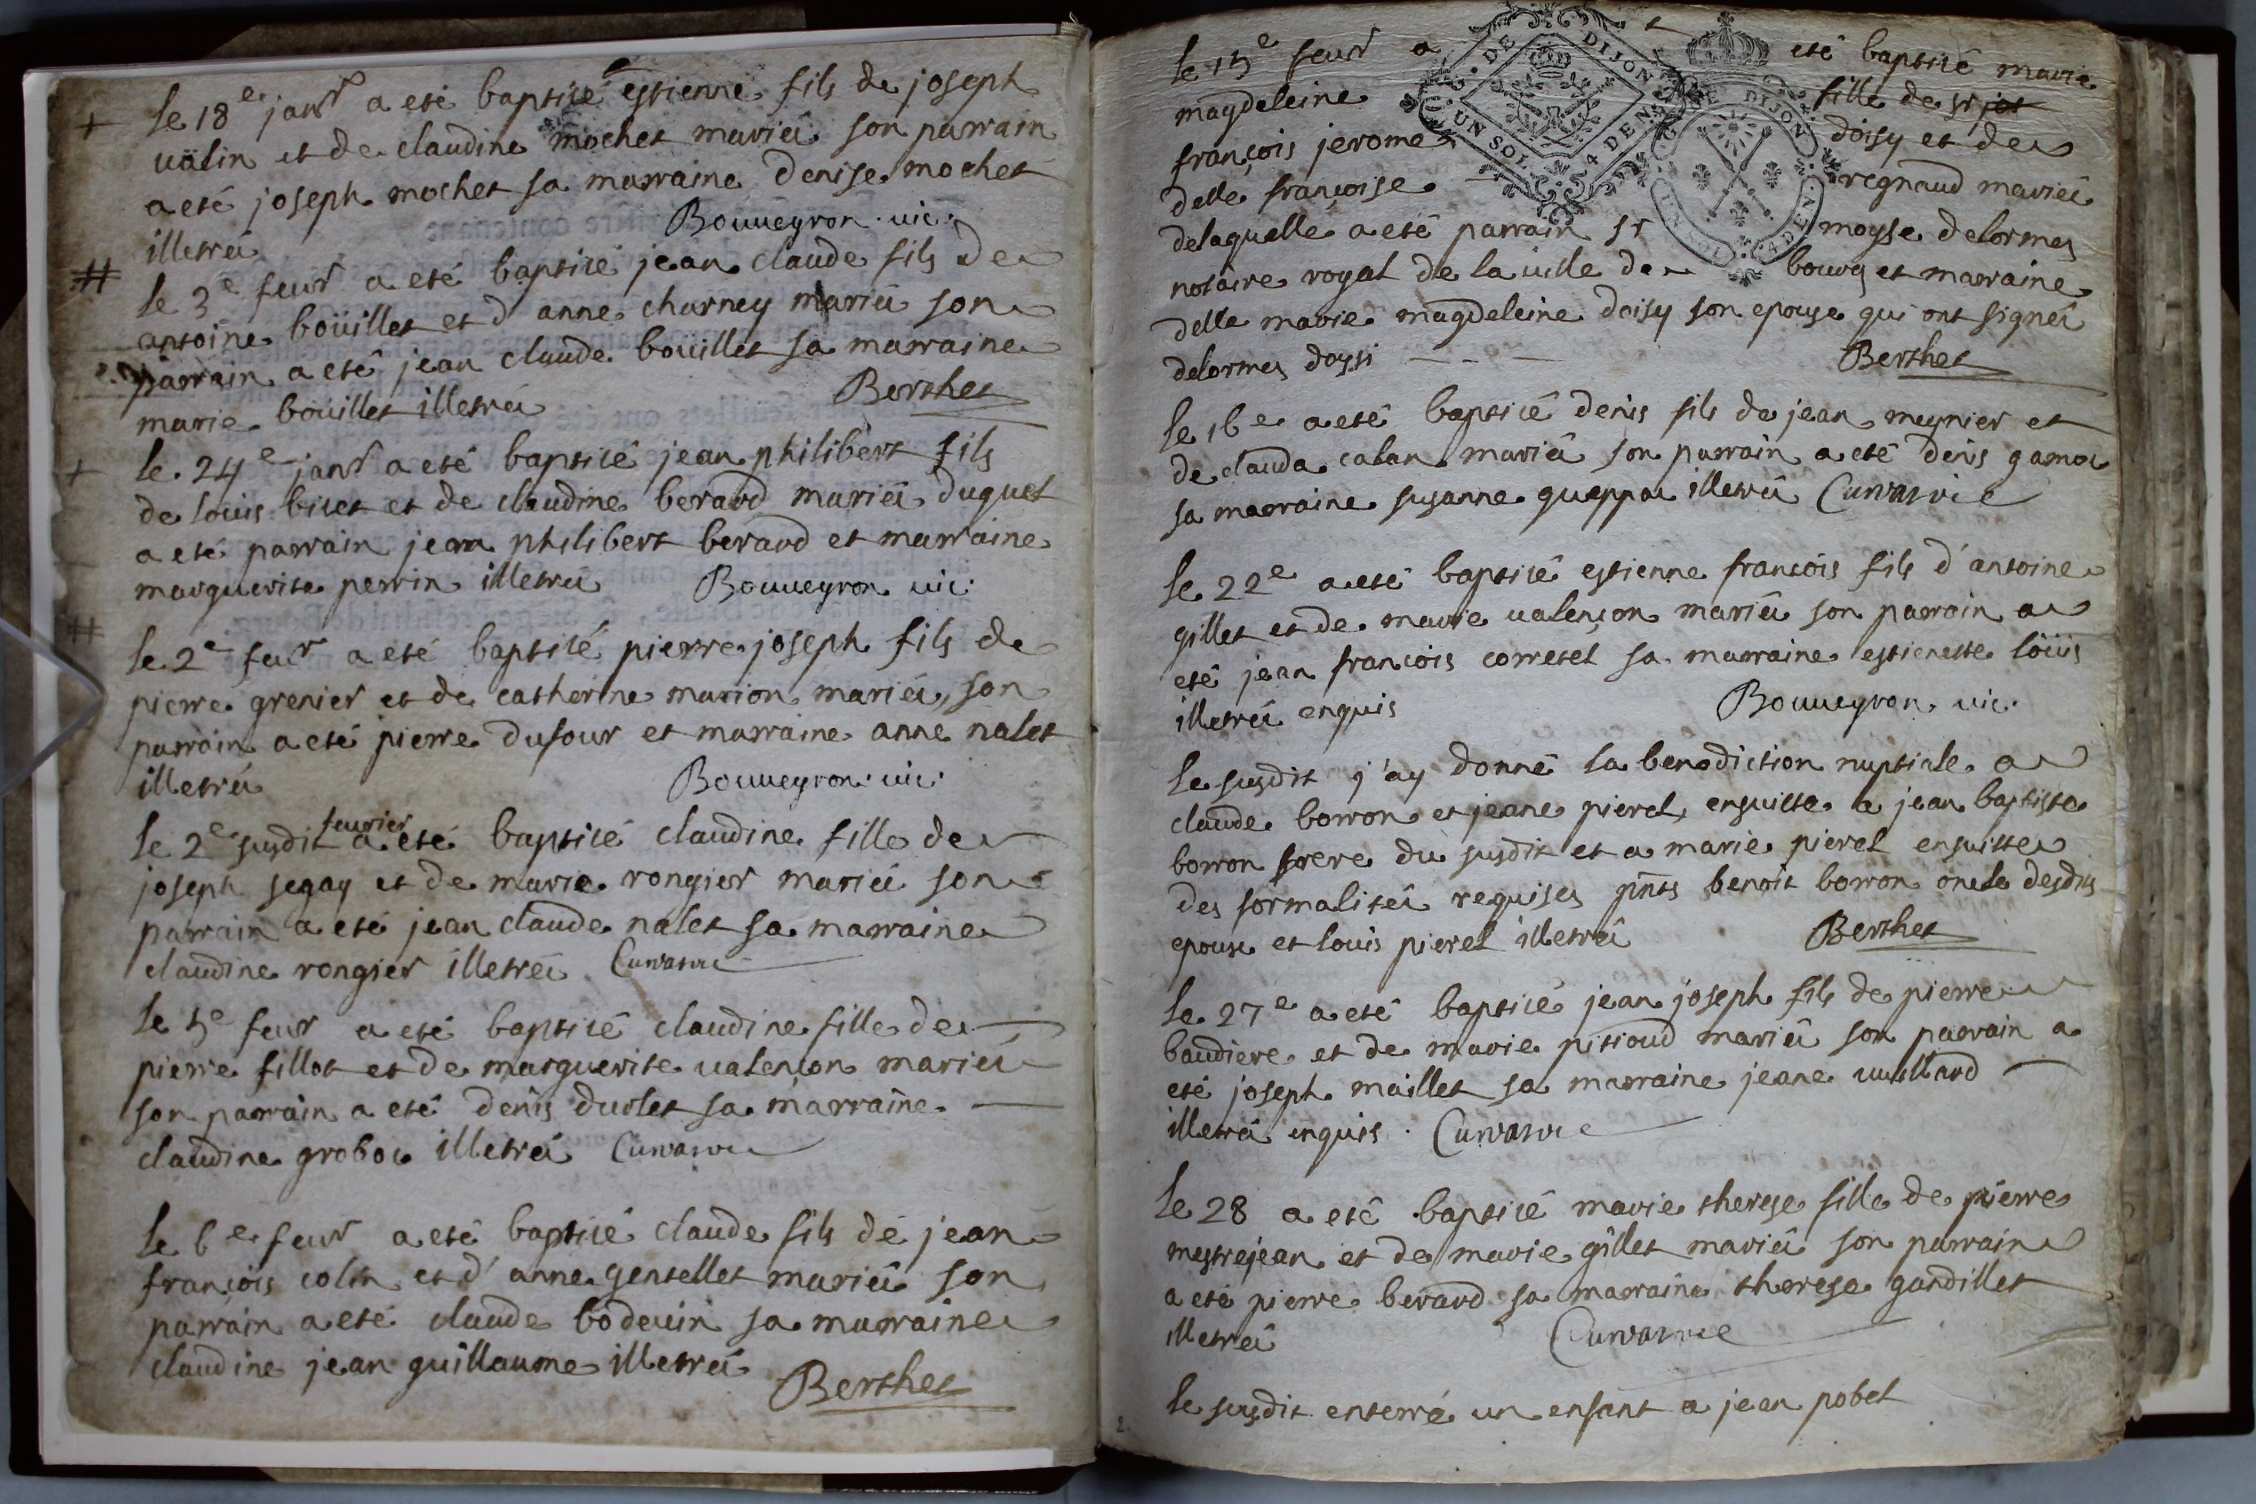 + le 18e janvr a eté baptisé estienne fils de joseph
valin et de claudine mochet mariéz son parrain
a eté joseph mochet sa marraine denise mochet
illetréz Bouveyron vic:
# le 3e feuvr a eté baptisé jean claude fils de
antoine boüillet et d'anne charney mariéz son
parrain a eté jean claude boüillet sa marraine
marie boüillet illetréz Berthet
+ le 24e janvr a eté baptisé jean philibert fils
de loüis biset et de claudine berard mariéz duquel
a eté parrain jean philibert berard et marraine
marguerite perrin illetréz Bouveyron vic:
# le 2e feuvr a eté baptisé pierre joseph fils de
pierre grenier et de catherine marion mariéz, son
parrain a eté pierre dufour et marraine anne nalet
illetréz Bouveyron vic:
feuvrier
le 2e susdit a eté baptisé claudine fille de
joseph segay et de marie rongier mariéz son
parrain a eté jean claude nalet sa marraine
claudine rongier illetréz
le 5e feuvr a eté baptisé claudine fille de
pierre fillot et de marguerite valençon mariéz
son parrain a eté denis duclet sa marraine
claudine groboz illetréz
le 6e feuvr a eté baptisé claude fils de jean
françois colin et d'anne gentellet mariéz son
parrain a eté claude bodevin sa marraine
claudine jean guillaume illetréz
Berthet
G. DE DIJON
UN SOL 4 DEN.
G. DE DIJON
UN SOL 4 DEN.
le 15e feuvr a eté baptisé marie
magdeleine fille de sr
françois jerome doisy et de
delle françoise regnaud mariéz
delaquelle a eté parrain sr moyse delormes
notaire royal de la ville de bourg et marraine
delle marie magdeleine doisy son epouse qui ont signéz
delormes doyssi Berthet
le 16e a eté baptisé denis fils de jean meynier et
de clauda calan mariéz son parrain a eté denis gamoz
sa marraine susanne gueppaz illetréz
le 22e a eté baptisé estienne françois fils d'antoine
gillet et de marie valençon mariéz son parrain a
eté jean françois corretel sa marraine estienette loüis
illetréz enquis Bouveyron vic:
le susdit j'ay donné la benediction nuptiale a
claude borron et jeane pierel, ensuitte a jean baptiste
borron frere du susdit et a marie pierel ensuitte
des formalitéz requises pñts benoit borron oncle desdits
epoux et loüis pierel illetréz Berthet
le 27e a eté baptisé jean joseph fils de pierre
baudiere et de marie pitioud mariéz son parrain a
eté joseph maillet sa marraine jeane vuillard
illetréz enquis
le 28 a eté baptisé marie therese fille de pierre
mestrejean et de marie gillet mariéz son parrain
a eté pierre berard sa marraine therese gandillet
illetréz
le susdit enterré un enfant a jean pobel